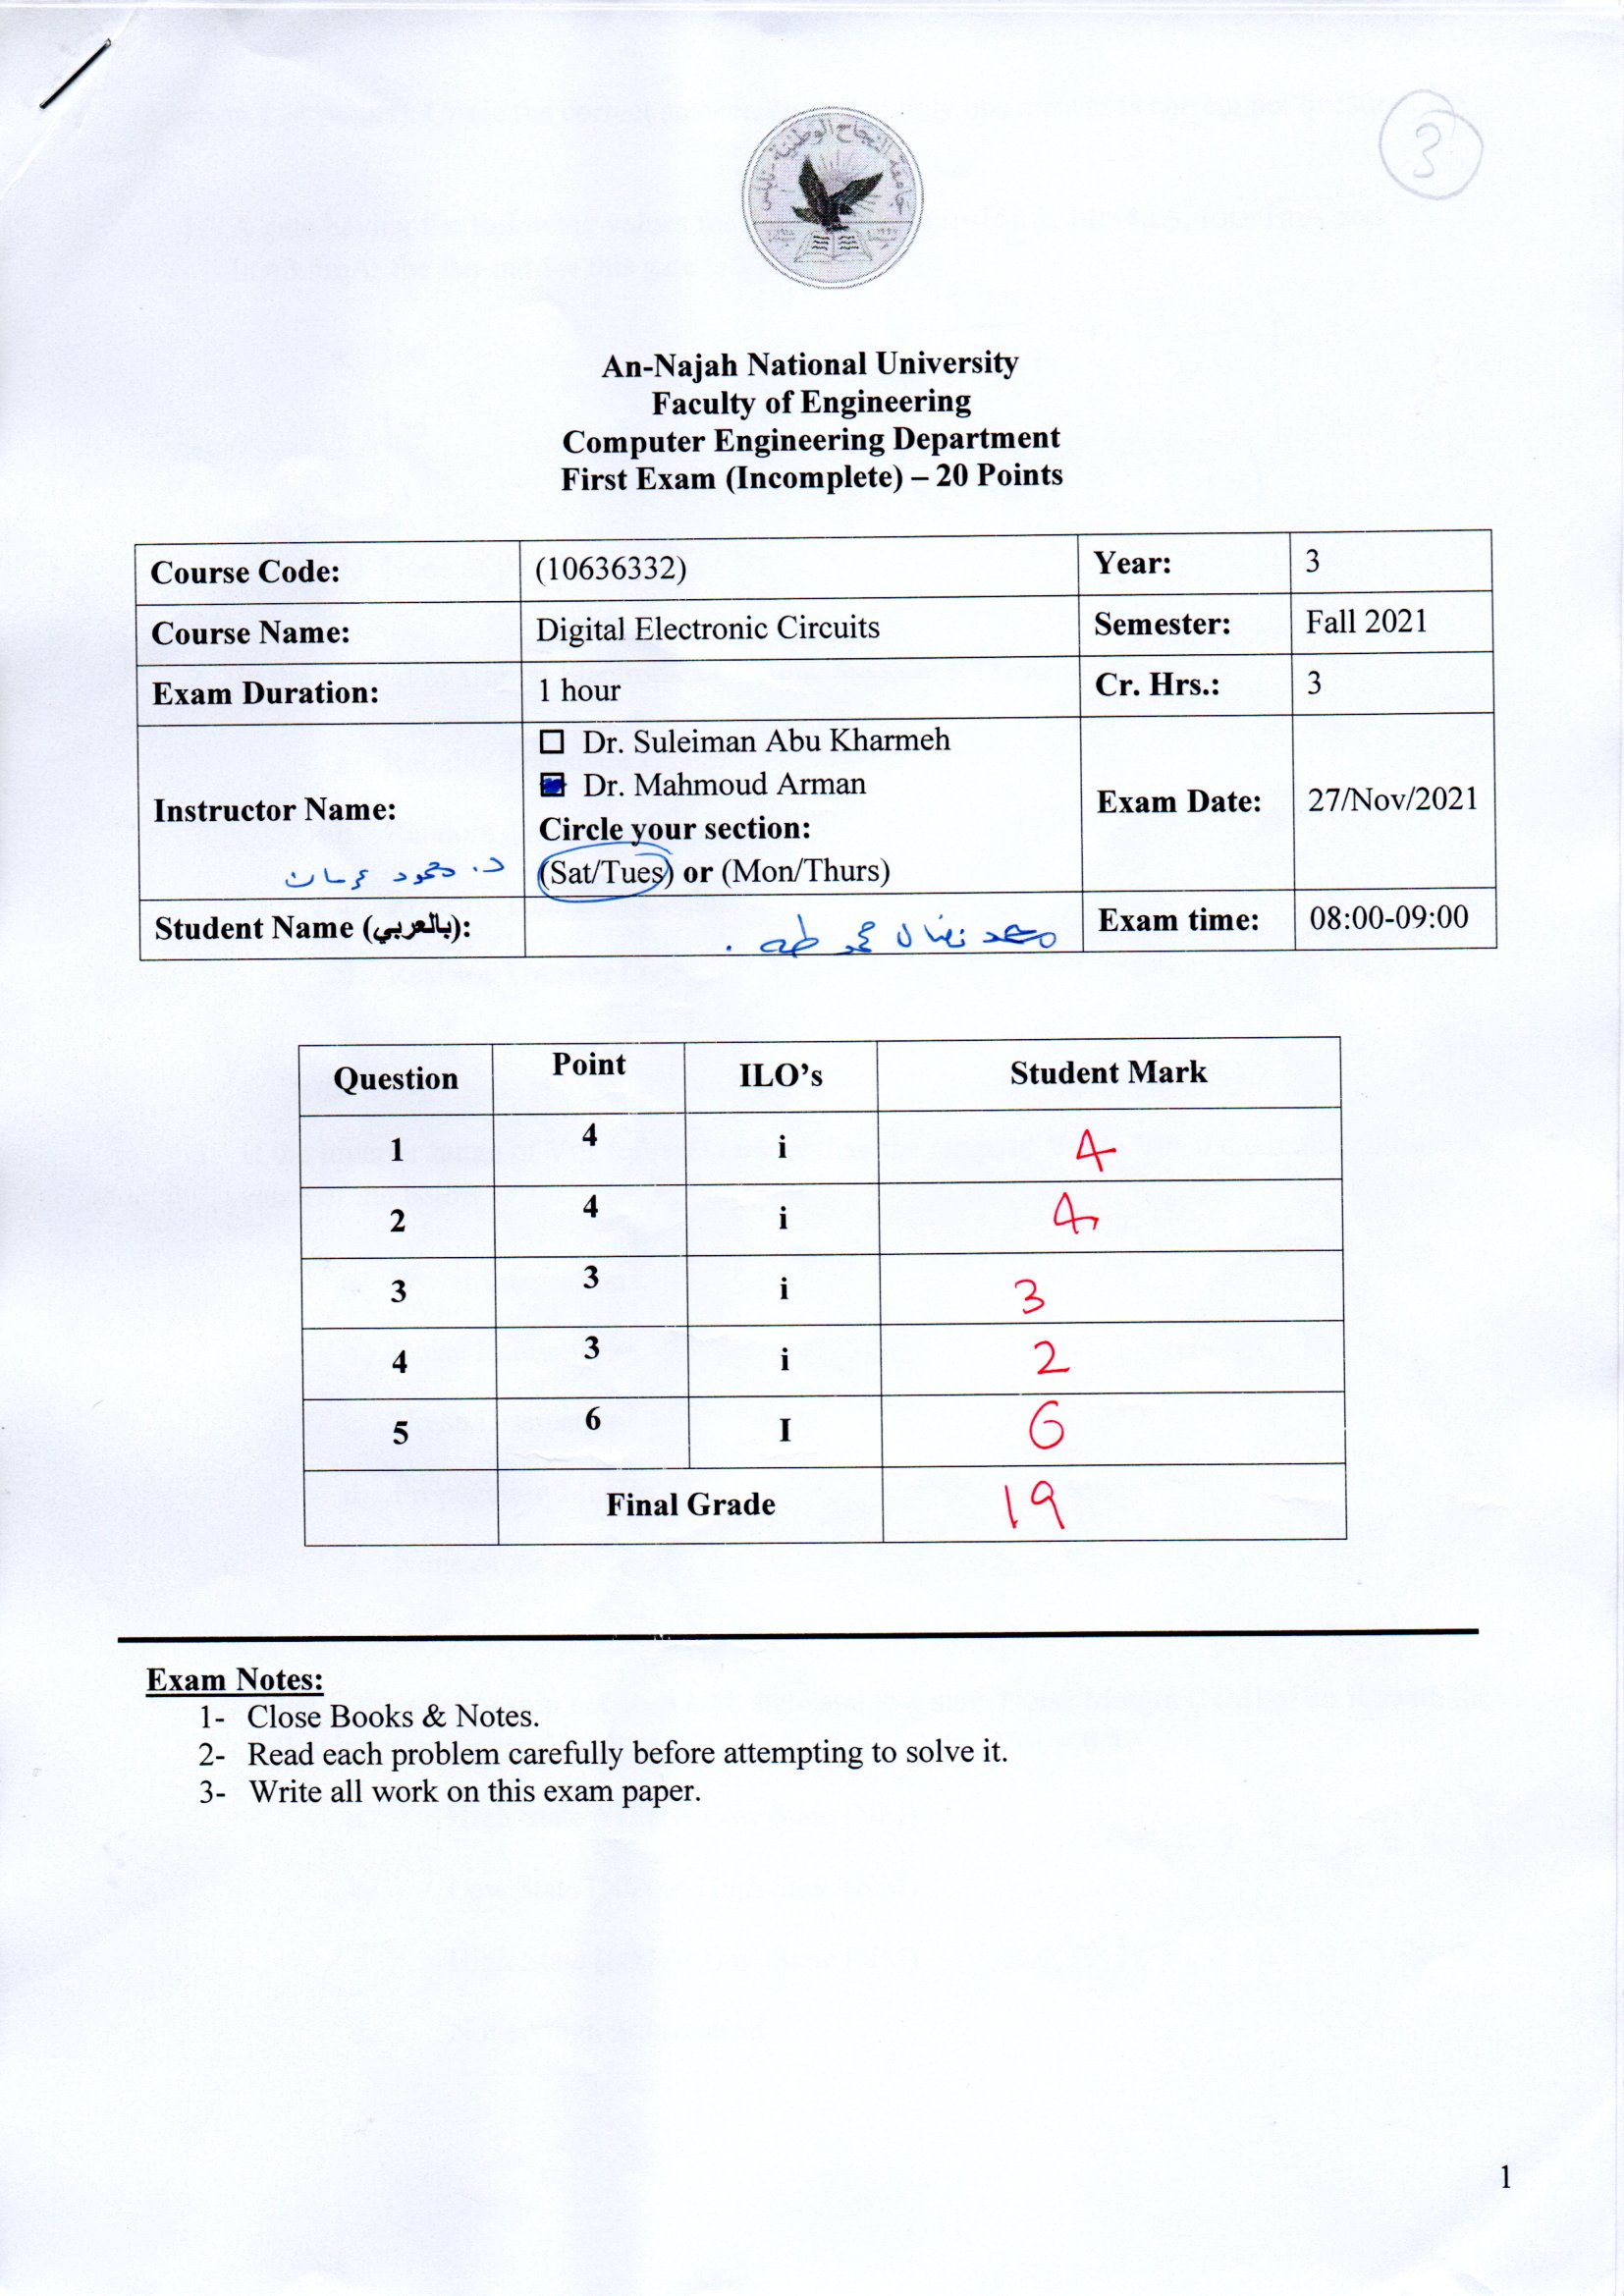 3
جامعة النجاح الوطنية - نابلس
An-Najah National University
Faculty of Engineering
Computer Engineering Department
First Exam (Incomplete) – 20 Points
Course Code: (10636332) Year: 3
Course Name: Digital Electronic Circuits Semester: Fall 2021
Exam Duration: 1 hour Cr. Hrs.: 3
Instructor Name: Dr. Suleiman Abu Kharmeh
Dr. Mahmoud Arman Exam Date: 27/Nov/2021
Circle your section:
د. محمود عرمان (Sat/Tues) or (Mon/Thurs)
Student Name (بالعربي): نضال محمد طه . Exam time: 08:00-09:00
Question Point ILO’s Student Mark
1 4 i 4
2 4 i 4
3 3 i 3
4 3 i 2
5 6 I 6
Final Grade 19
Exam Notes:
1- Close Books & Notes.
2- Read each problem carefully before attempting to solve it.
3- Write all work on this exam paper.
1